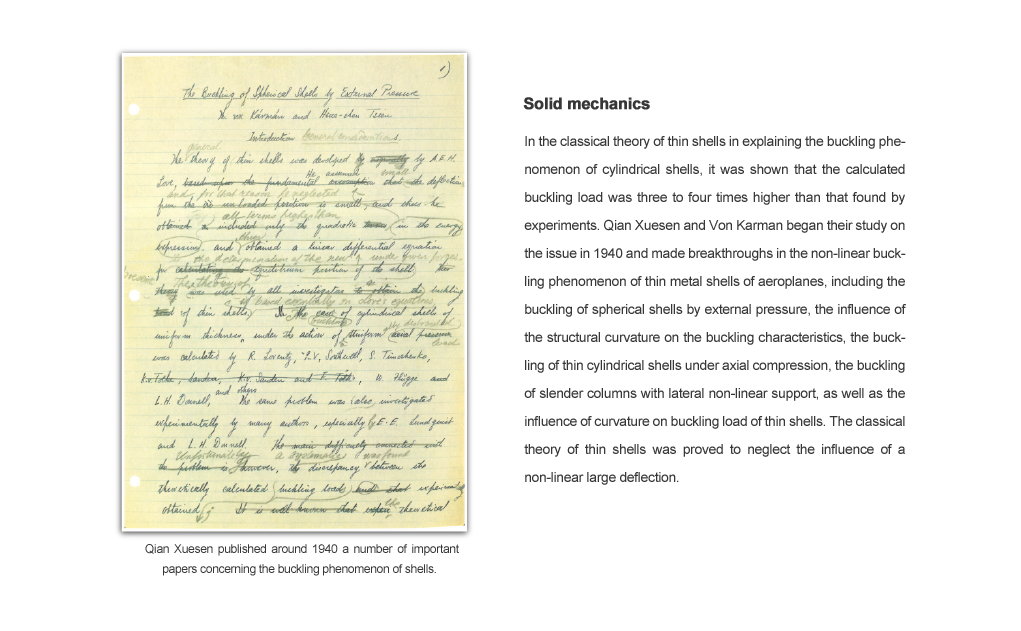 1)
The Buckling of Spherical Shells by External Pressure
Th. von Kármán and Hsue-shen Tsien
Introduction General considerations.
general
The theory of thin shells was developed by by A.E.H.
He assumed small
Love, based upon the fundamental assumption that the deflection
and for that reason he neglected
from the un loaded position is small, and thus he
all terms higher than
obtained included only the quadratic in the energy
then
expression, and obtained a linear differential equation
the determination of the new under given
for calculating the equilibrium position of the shell.
The theory of
was used by all investigators to obtain the buckling
is based essentially on Love's equations
load of thin shells. In the case of cylindrical shells of
buckling
uniform thickness, under the action of uniform axial pressure
load
was calculated by R. Lorentz, R.V. Southwell, S. Timoshenko,
K. v. Sanden and F. Tölke, W. Flügge and
and others
L.H. Donnell, The same problem was also investigated
experimentally by many authors, especially by E.E. Lundquist
and L.H. Donnell. The main difficulty connected with
Unfortunately a systematic was found
the problem is however, the discrepancy between the
theoretically calculated buckling loads and that experimentally
the
obtained; It is well known that theoretical
Qian Xuesen published around 1940 a number of important
papers concerning the buckling phenomenon of shells.
Solid mechanics
In the classical theory of thin shells in explaining the buckling phe-
nomenon of cylindrical shells, it was shown that the calculated
buckling load was three to four times higher than that found by
experiments. Qian Xuesen and Von Karman began their study on
the issue in 1940 and made breakthroughs in the non-linear buck-
ling phenomenon of thin metal shells of aeroplanes, including the
buckling of spherical shells by external pressure, the influence of
the structural curvature on the buckling characteristics, the buck-
ling of thin cylindrical shells under axial compression, the buckling
of slender columns with lateral non-linear support, as well as the
influence of curvature on buckling load of thin shells. The classical
theory of thin shells was proved to neglect the influence of a
non-linear large deflection.